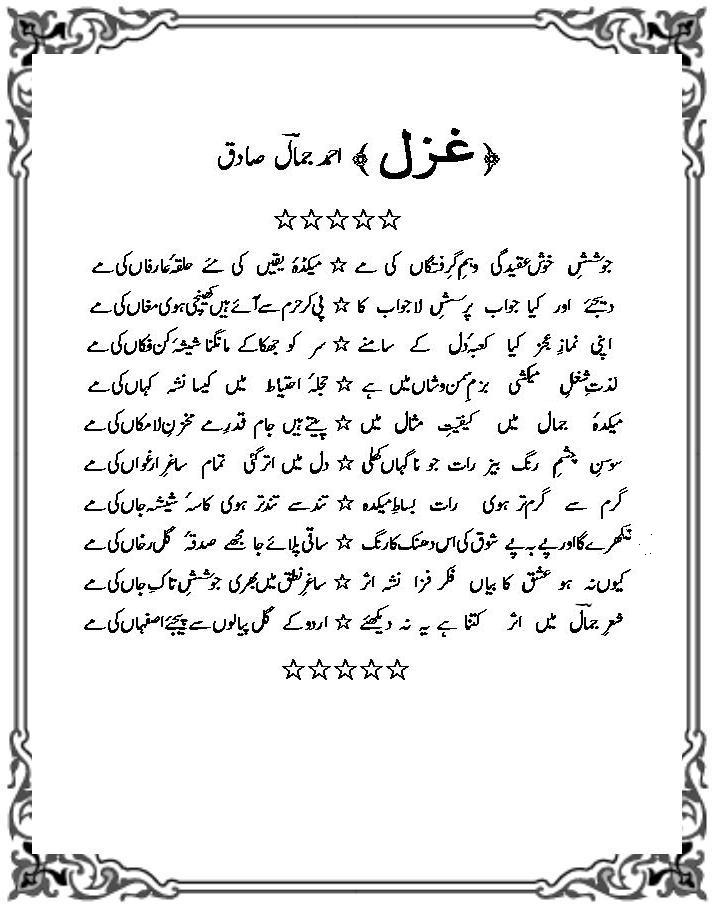 ﴿غزل﴾ احمد جمالؔ صادق
☆☆☆☆☆
جوششِ خوش عقیدگی وہمِ گرفتگاں کی مے ☆ میکدۂ یقیں کی مئے حلقہ ٔعارفاں کی مے
دیجئے اور کیا جواب پرسشِ لاجواب کا ☆ پی کر حرم سے آئے ہیں کھینچی ہوی مغاں کی مے
اپنی نمازِ عجز کیا کعبہ ٔدل کے سامنے ☆ سر کو جھکا کے مانگنا شیشہ ٔکن فکاں کی مے
لذتِ شغلِ میکشی بزمِ سمن وشاں میں ہے ☆ حجلہ ٔ احتیاط میں کیسا نشہ کہاں کی مے
میکدۂ جمال میں کیفیتِ مثال میں ☆ پیتے ہیں جام قدرِ مے مخزنِ لامکاں کی مے
سوسنِ چشمِ رنگ بیز رات جو ناگہاں کھلی ☆ دل میں اتر گئی تمام ساغرِ ارغواں کی مے
گرم سے گرم تر ہوی رات بساطِ میکدہ ☆ تند سے تند تر ہوی کاسہ ٔ شیشہ جاں کی مے
نکھرے گا اور پے بہ پے شوق کی اس دھنک کا رنگ ☆ ساقی پلائے جا مجھے صدقہ ٔ گل رخاں کی مے
کیوں نہ ہو عشق کا بیاں فکر فزا نشہ اثر ☆ ساغرِ نطق میں بھری جوششِ تاکِ جاں کی مے
شعرِ جمالؔ میں اثر کتنا ہے یہ نہ دیکھئے ☆ اردو کے گل پیالوں سے پیجئے اصفہاں کی مے
☆☆☆☆☆